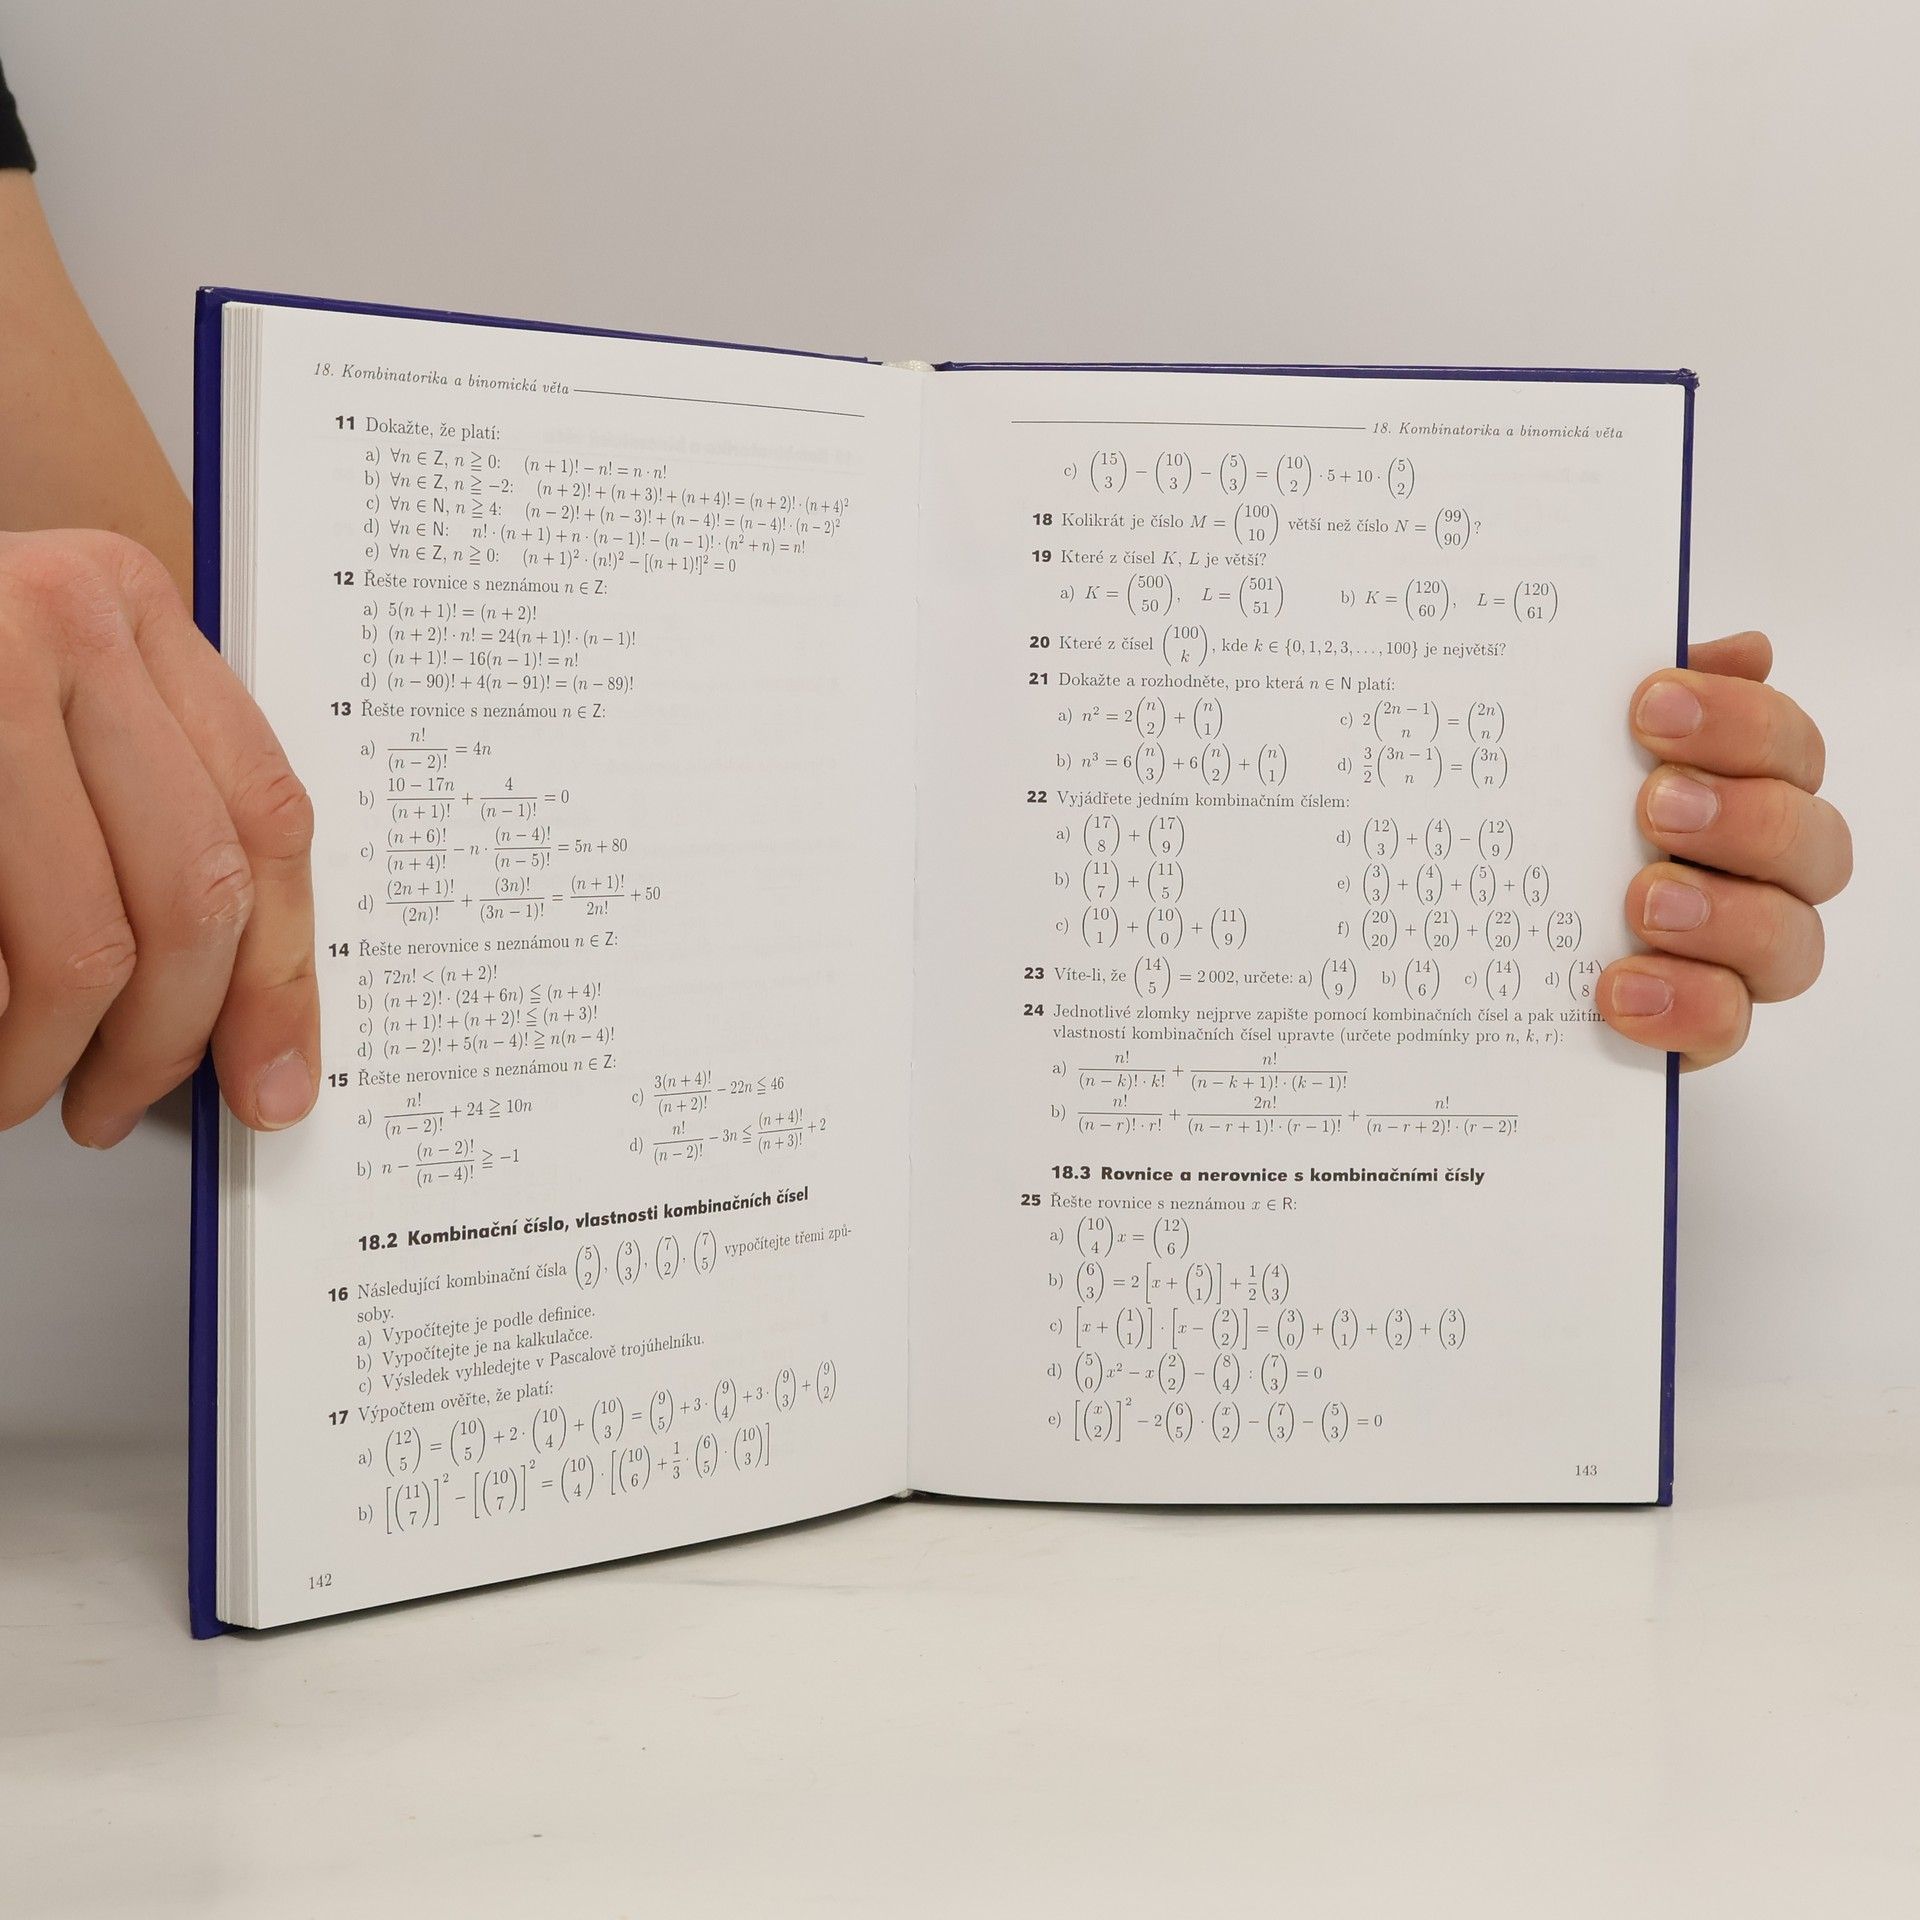 18. Kombinatorika a binomická věta
11 Dokažte, že platí:
a) ∀n ∈ Z, n ≧ 0: (n + 1)! − n! = n · n!
b) ∀n ∈ Z, n ≧ −2: (n + 2)! + (n + 3)! + (n + 4)! = (n + 2)! · (n + 4)²
c) ∀n ∈ N, n ≧ 4: (n − 2)! + (n − 3)! + (n − 4)! = (n − 4)! · (n − 2)²
d) ∀n ∈ N: n! · (n + 1) + n · (n − 1)! − (n − 1)! · (n² + n) = n!
e) ∀n ∈ Z, n ≧ 0: (n + 1)² · (n!)² − [(n + 1)!]² = 0
12 Řešte rovnice s neznámou n ∈ Z:
a) 5(n + 1)! = (n + 2)!
b) (n + 2)! · n! = 24(n + 1)! · (n − 1)!
c) (n + 1)! − 16(n − 1)! = n!
d) (n − 90)! + 4(n − 91)! = (n − 89)!
13 Řešte rovnice s neznámou n ∈ Z:
a) n!/(n − 2)! = 4n
b) (10 − 17n)/(n + 1)! + 4/(n − 1)! = 0
c) (n + 6)!/(n + 4)! − n · (n − 4)!/(n − 5)! = 5n + 80
d) (2n + 1)!/(2n)! + (3n)!/(3n − 1)! = (n + 1)!/2n! + 50
14 Řešte nerovnice s neznámou n ∈ Z:
a) 72n! < (n + 2)!
b) (n + 2)! · (24 + 6n) ≦ (n + 4)!
c) (n + 1)! + (n + 2)! ≦ (n + 3)!
d) (n − 2)! + 5(n − 4)! ≧ n(n − 4)!
15 Řešte nerovnice s neznámou n ∈ Z:
a) n!/(n − 2)! + 24 ≧ 10n c) 3(n + 4)!/(n + 2)! − 22n ≦ 46
b) n − (n − 2)!/(n − 4)! ≧ −1 d) n!/(n − 2)! − 3n ≦ (n + 4)!/(n + 3)! + 2
18.2 Kombinační číslo, vlastnosti kombinačních čísel
16 Následující kombinační čísla (5 2), (3 3), (7 2), (7 5) vypočítejte třemi způ-
soby.
a) Vypočítejte je podle definice.
b) Vypočítejte je na kalkulačce.
c) Výsledek vyhledejte v Pascalově trojúhelníku.
17 Výpočtem ověřte, že platí:
a) (12 5) = (10 5) + 2 · (10 4) + (10 3) = (9 5) + 3 · (9 4) + 3 · (9 3) + (9 2)
b) [(11 7)]² − [(10 7)]² = (10 4) · [(10 6) + 1/3 · (6 5) · (10 3)]
142
18. Kombinatorika a binomická věta
c) (15 3) − (10 3) − (5 3) = (10 2) · 5 + 10 · (5 2)
18 Kolikrát je číslo M = (100 10) větší než číslo N = (99 90)?
19 Které z čísel K, L je větší?
a) K = (500 50), L = (501 51) b) K = (120 60), L = (120 61)
20 Které z čísel (100 k), kde k ∈ {0, 1, 2, 3, . . . , 100} je největší?
21 Dokažte a rozhodněte, pro která n ∈ N platí:
a) n² = 2(n 2) + (n 1) c) 2(2n − 1 n) = (2n n)
b) n³ = 6(n 3) + 6(n 2) + (n 1) d) 3/2 (3n − 1 n) = (3n n)
22 Vyjádřete jedním kombinačním číslem:
a) (17 8) + (17 9) d) (12 3) + (4 3) − (12 9)
b) (11 7) + (11 5) e) (3 3) + (4 3) + (5 3) + (6 3)
c) (10 1) + (10 0) + (11 9) f) (20 20) + (21 20) + (22 20) + (23 20)
23 Víte-li, že (14 5) = 2 002, určete: a) (14 9) b) (14 6) c) (14 4) d) (14 8
24 Jednotlivé zlomky nejprve zapište pomocí kombinačních čísel a pak užitím
vlastností kombinačních čísel upravte (určete podmínky pro n, k, r):
a) n!/((n − k)! · k!) + n!/((n − k + 1)! · (k − 1)!)
b) n!/((n − r)! · r!) + 2n!/((n − r + 1)! · (r − 1)!) + n!/((n − r + 2)! · (r − 2)!)
18.3 Rovnice a nerovnice s kombinačními čísly
25 Řešte rovnice s neznámou x ∈ R:
a) (10 4)x = (12 6)
b) (6 3) = 2[x + (5 1)] + 1/2 (4 3)
c) [x + (1 1)] · [x − (2 2)] = (3 0) + (3 1) + (3 2) + (3 3)
d) (5 0)x² − x(2 2) − (8 4) : (7 3) = 0
e) [(x 2)]² − 2(6 5) · (x 2) − (7 3) − (5 3) = 0
143